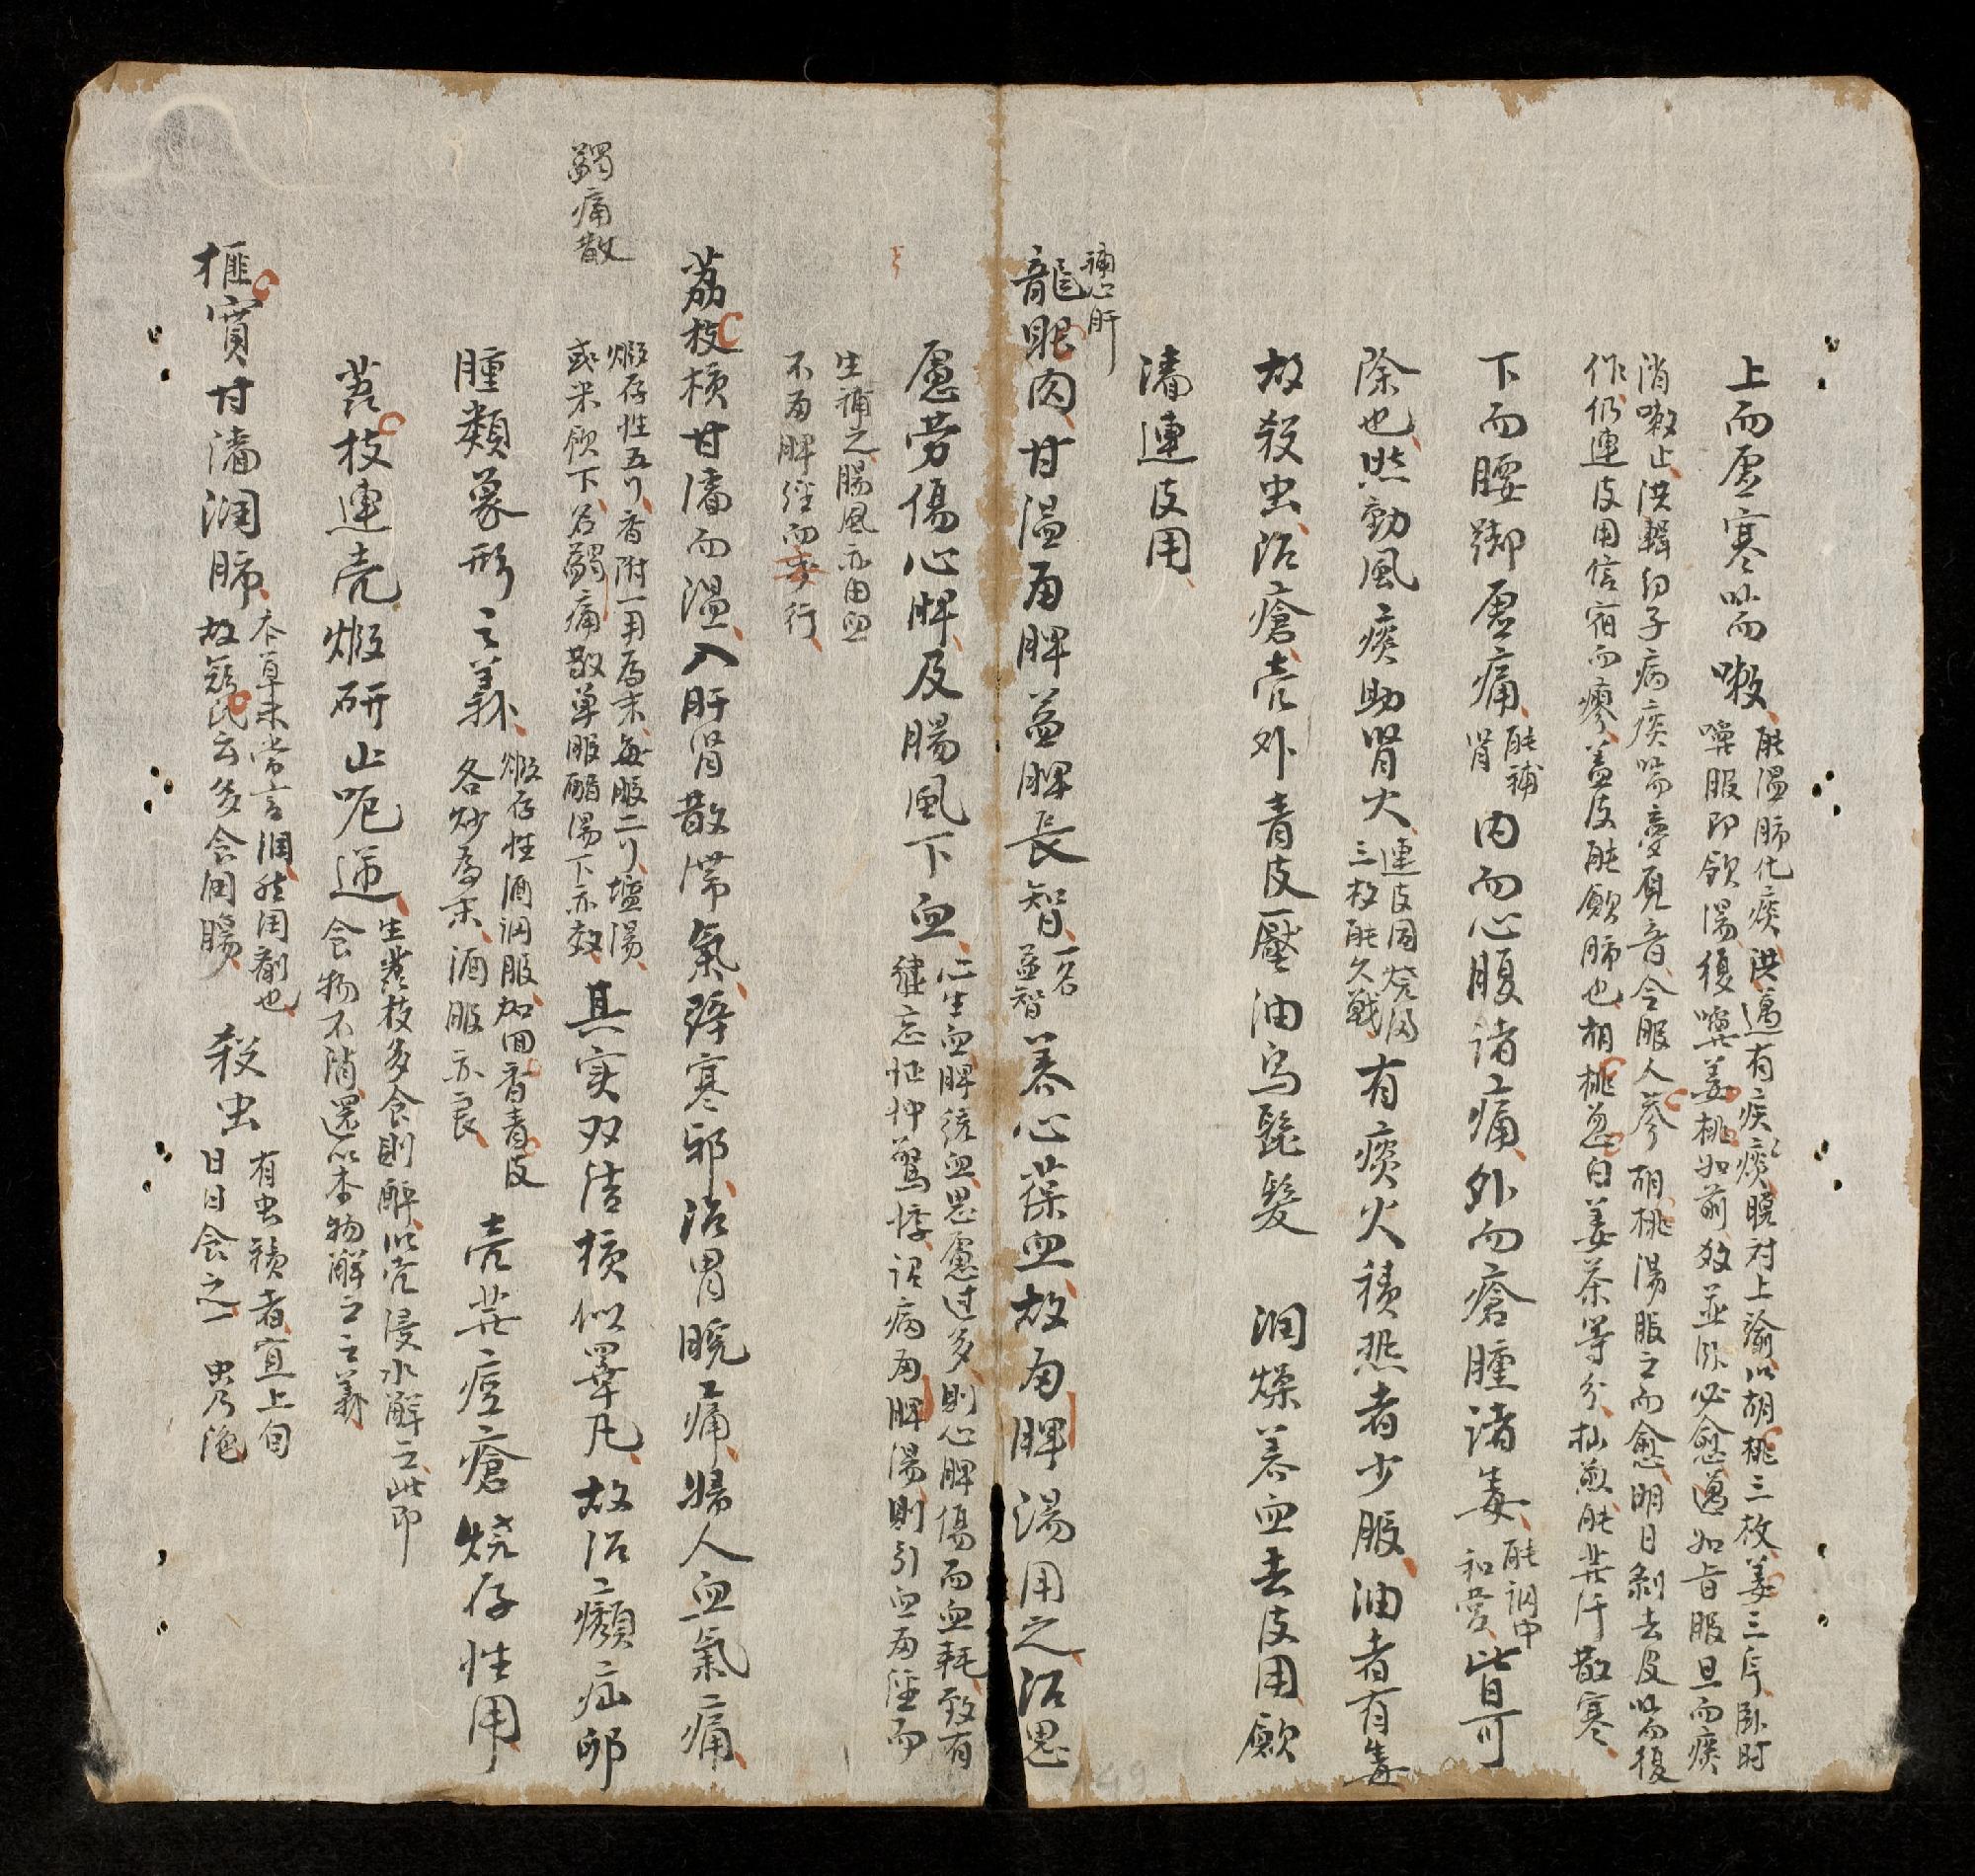 上而虛寒喘嗽能溫肺化痰洪邁有痰疾晚对上諭以胡桃三枚姜三片臥时
嚼服即飲湯復嚼姜桃如前数並臥必愈邁如旨服旦而痰
消嗽止洪輯幼子病痰喘夢观音令服人參胡桃湯服之而愈明日剝去皮喘復
作仍連皮用信宿而瘳盖皮能斂肺也胡桃葱白姜茶等分杣煎能発汗散寒
下而腰脚虛痛能補腎内而心腹诸痛外而瘡腫诸毒能调中和营皆可
除也然動風痰助腎火連皮同烧
三枚能久戰有痰火積热者少服油者有毒
故殺虫治瘡壳外青皮壓油烏髭髮　润燥养血去皮用斂
濇連皮用
補心肝
龍眼肉甘溫歸脾益脾長智一名益智养心葆血故歸脾湯用之治思
慮劳傷心脾及腸風下血心生血脾统血思慮过多則心脾傷而血耗致有
健忘怔忡驚悸诸病歸脾湯則引血歸經而
生補之腸風亦由血
不歸脾經而妄行
荔枝核甘濇而溫入肝腎散滞氣辟寒邪治胃脘痛婦人血氣痛
蠲痛散
煅存性五丬香附一用為末每服二丬塩湯
或米飲下名蠲痛散单服醋湯下亦效其实双结核似睾丸故治㿗疝卵
腫類象形之義煅存性酒调服加茴香青皮
各炒為末酒服亦良壳発痘瘡烧存性用
荔枝連壳煅研止呃逆生荔枝多食則醉以壳浸水解之此即
食物不消還以本物解之之義
榧實甘濇润肺本草未常言润然润劑也
故寇氏云多食润腸殺虫有虫積者宜上旬
日日食之虫乃绝